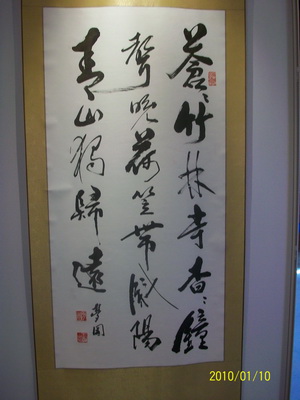 蒼〻竹林寺杳〻鐘
聲晚荷笠帶斜陽
青山獨歸遠
2010/01/10